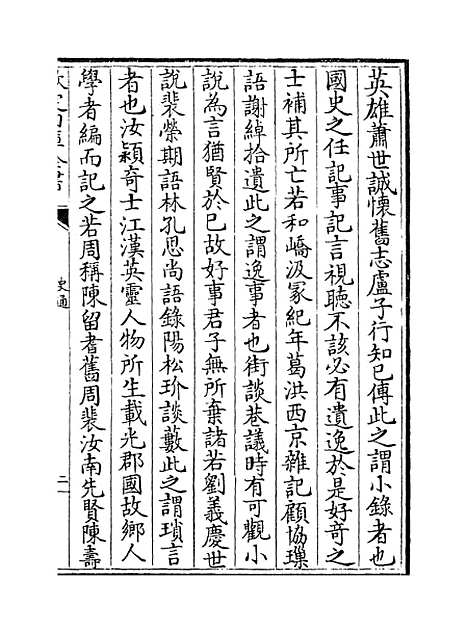 英雄蕭世誠懷舊志盧子行知己傳此之謂小錄者也
國史之任記事記言視聽不該必有遺逸於是好奇之
士補其所亡若和嶠汲冡紀年葛洪西京雜記顧協瑣
語謝綽拾遺此之謂逸事者也街談巷議時有可觀小
說為言猶賢於已故好事君子無所棄諸若劉義慶世
說裴榮期語林孔思尚語錄陽松玠談藪此之謂瑣言
者也汝潁奇士江漢英靈人物所生載光郡國故鄉人
學者編而記之若周稱陳留耆舊周裴汝南先賢陳壽
史通